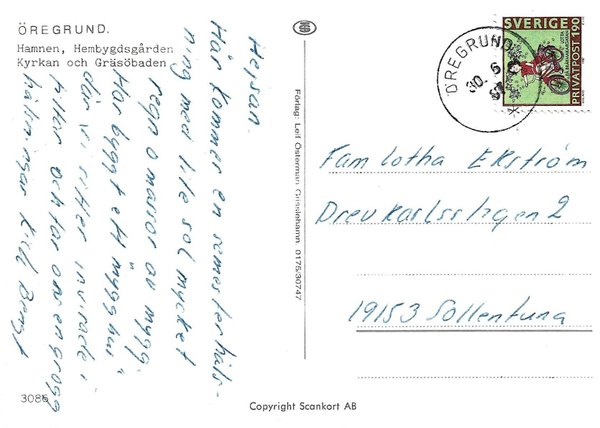 ÖREGRUND.
Hamnen, Hembygdsgården
Kyrkan och Gräsöbaden
Hejsan.
Här kommer en semesterhäls-
ning med lite sol mycket
regn o massor av mygg
Har byggt ett "mygghus"
där vi sitter invirade i
filtar och tar oss en grogg
hälsningar Bengt
3086
Förlag: Leif Österman, Grisslehamn. 0175/30747
Copyright Scankort AB
ÖREGRUND
30. 6
SVERIGE
PRIVATPOST 1.90
Fam Lotha Ekström
Drevkarlsstigen 2
19153 Sollentuna